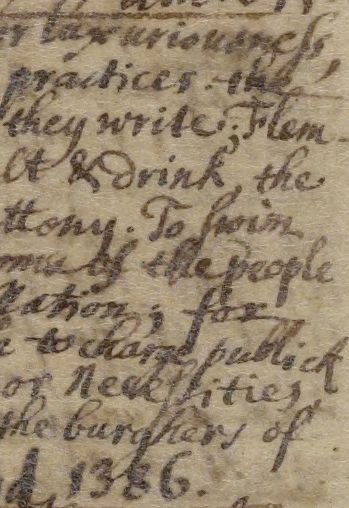 luxuriousness,
practices. the
they write; Flem
& drink, the
ttony. To swim
of the people
lation; for
to charge publick
or Necessities,
the burghers of
1386.